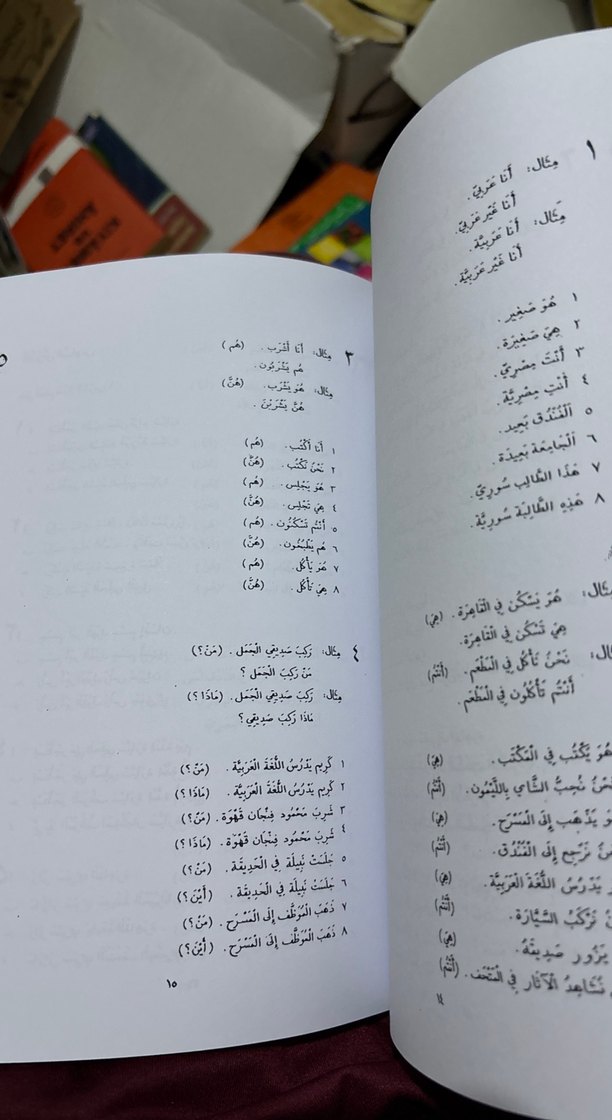 ١ مِثَال: أَنَا عَرَبِيّ.
أَنَا غَيْر عَرَبِيّ.
مِثَال: أَنَا عَرَبِيَّة.
أَنَا غَيْر عَرَبِيَّة.
١ هُوَ صَغِير.
٢ هِيَ صَغِيرَة.
٣ أَنْتَ مِصْرِيّ.
٤ أَنْتِ مِصْرِيَّة.
٥ اَلْفُنْدُق بَعِيد.
٦ اَلْجَامِعَة بَعِيدَة.
٧ هَذَا الطَّالِب سُورِيّ.
٨ هَذِهِ الطَّالِبَة سُورِيَّة.
هُوَ يَسْكُن فِي الْقَاهِرَة. (هِيَ)
هِيَ تَسْكُن فِي الْقَاهِرَة.
نَحْنُ نَأْكُل فِي الْمَطْعَم. (أَنْتُم)
أَنْتُم تَأْكُلُون فِي الْمَطْعَم.
هُوَ يَكْتُب فِي الْمَكْتَب. (هِيَ)
نَحْنُ نُحِبُّ الشَّاي بِاللَّيْمُون. (أَنْتُم)
يَذْهَب إِلَى الْمَسْرَح. (هِيَ)
نَرْجِع إِلَى الْفُنْدُق. (أَنْتُم)
يَدْرُس اللُّغَة الْعَرَبِيَّة. (هِيَ)
نَرْكَب السَّيَّارَة. (أَنْتُم)
يَزُور صَدِيقَهُ. (هِيَ)
نُشَاهِدُ الْآثَار فِي الْمَتْحَف. (أَنْتُم)
١٤
٣ مِثَال: أَنَا أَشْرَب. (هُم)
هُم يَشْرَبُون.
مِثَال: هُوَ يَشْرَب. (هُنَّ)
هُنَّ يَشْرَبْنَ.
١ أَنَا أَكْتُب. (هُم)
٢ نَحْنُ نَكْتُب. (هُنَّ)
٣ هُوَ يَجْلِس. (هُم)
٤ هِيَ تَجْلِس. (هُنَّ)
٥ أَنْتُم تَسْكُنُون. (هُم)
٦ هُم يَطْبُخُون. (هُنَّ)
٧ هُوَ يَأْكُل. (هُم)
٨ هِيَ تَأْكُل. (هُنَّ)
٤ مِثَال: رَكِبَ صَدِيقِي الْجَمَل. (مَنْ؟)
مَنْ رَكِبَ الْجَمَل؟
مِثَال: رَكِبَ صَدِيقِي الْجَمَل. (مَاذَا؟)
مَاذَا رَكِبَ صَدِيقِي؟
١ كَرِيم يَدْرُسُ اللُّغَة الْعَرَبِيَّة. (مَنْ؟)
٢ كَرِيم يَدْرُسُ اللُّغَة الْعَرَبِيَّة. (مَاذَا؟)
٣ شَرِبَ مَحْمُود فِنْجَان قَهْوَة. (مَنْ؟)
٤ شَرِبَ مَحْمُود فِنْجَان قَهْوَة. (مَاذَا؟)
٥ جَلَسَتْ نَبِيلَة فِي الْحَدِيقَة. (مَنْ؟)
٦ جَلَسَتْ نَبِيلَة فِي الْحَدِيقَة. (أَيْنَ؟)
٧ ذَهَبَ الْمُوَظَّف إِلَى الْمَسْرَح. (مَنْ؟)
٨ ذَهَبَ الْمُوَظَّف إِلَى الْمَسْرَح. (أَيْنَ؟)
١٥